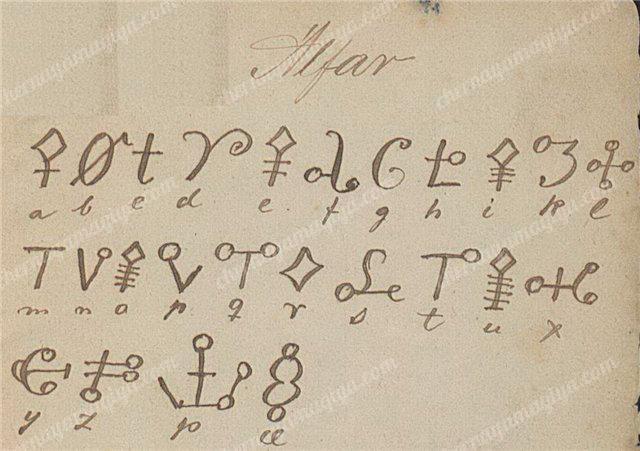 Alfar
a b c d e. f g h i k l
m n o p q r s t u x
y z p æ
chernayamagiya.com